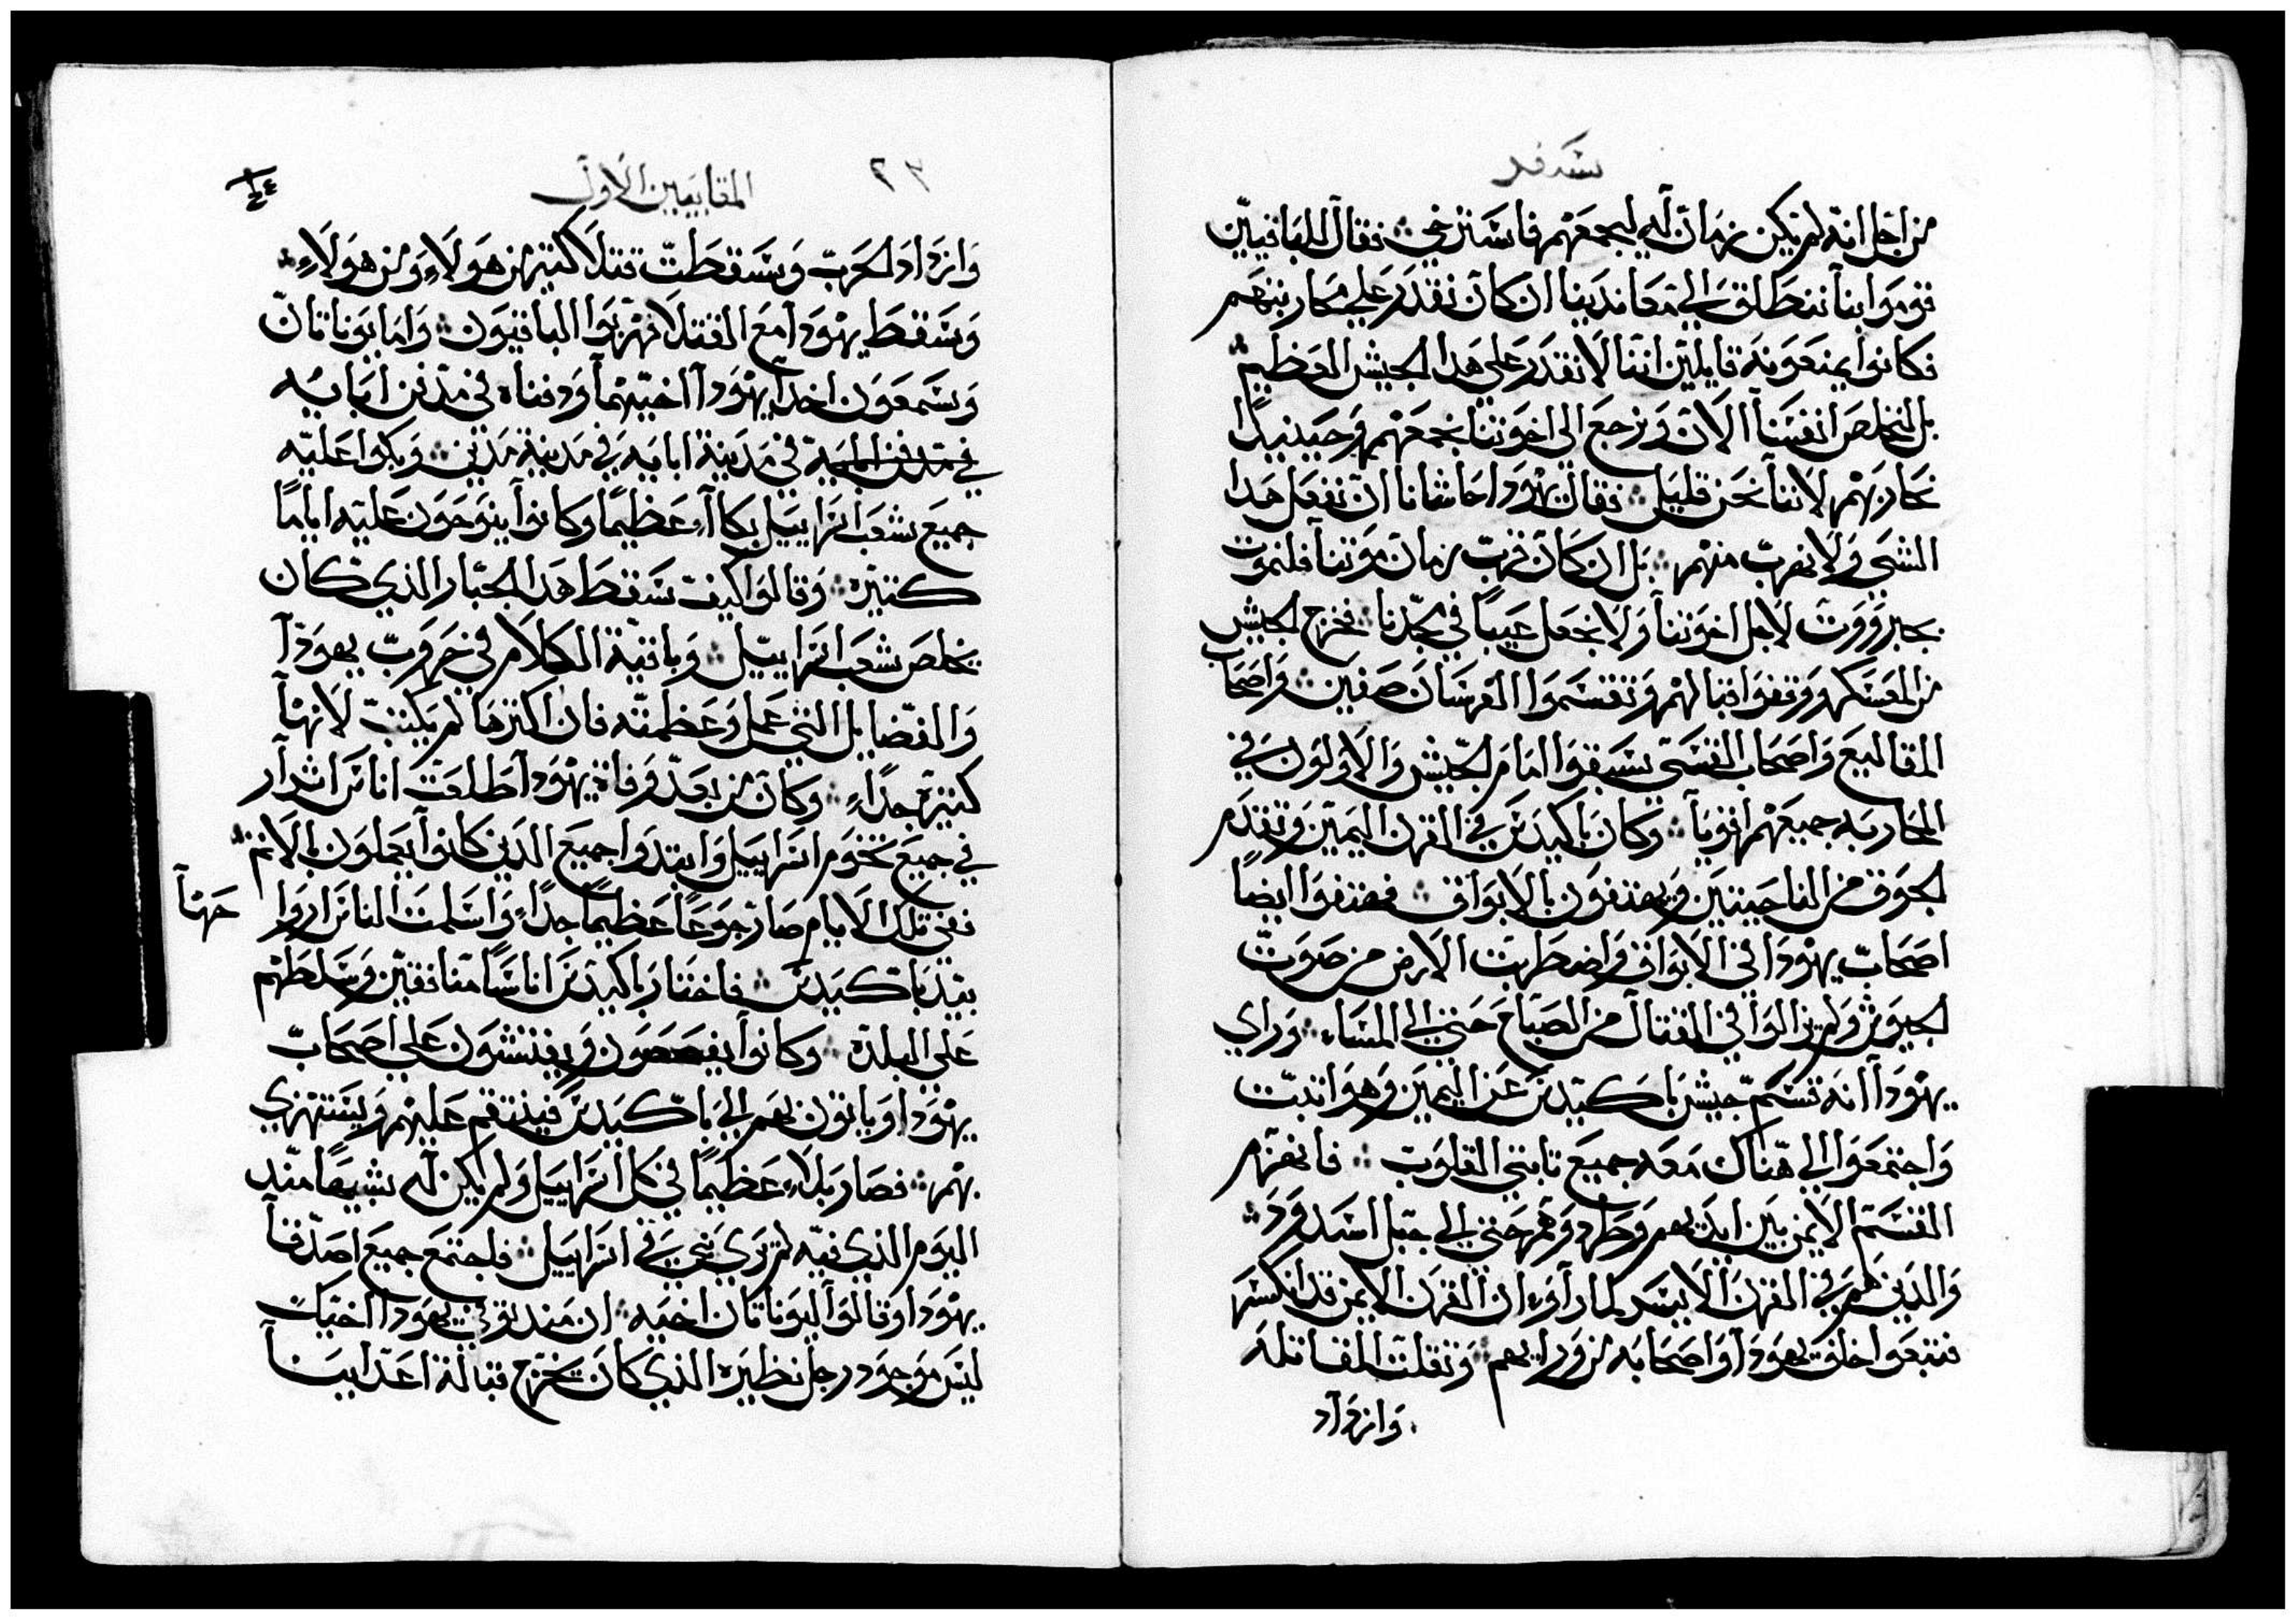 سفر
من اجل انه لم يكن زمان له ليجمعهم فاسترخي ۞ فقال للباقيين
قوموا بنا ننطلق الي معاندينا ان كان نقدر علي محاربتهم
فكانوا يمنعونه قايلين اننا لا نقدر علي هدا الجيش العظيم ۞
بل لنخلص انفسنا الان ونرجع الى اخوتنا نجمعهم وحينيدا
نحاربهم لاننا نحن قليل ۞ فقال يهودا حاشانا ان نفعل هدا
الشي ولا نهرب منهم ۞ بل ان كان قرب زمان موتنا فلنموت
بجبرووت لاجل اخوتنا ولا نجعل عيبا في مجدنا ۞ فخرج الجيش
من العسكر ووقفوا قبالهم وتقسموا الفرسان صفين ۞ واصحاب
المقاليع واصحاب القسي سبقوا امام الجيش والاولون في
المحاربه جميعهم اقويا ۞ وكان باكيدس في القرن اليمين وتقدم
الجوق من الناحيتين ويهتفون بالابواق ۞ فهتفوا ايضا
اصحاب يهودا في الابواق واضطربت الارض من صوت
الجيوش ولم يزالوا في القتال من الصباح حتي الي المساء ۞ وراي
يهودا انه قسم جيش باكيدس عن اليمين وهو اتبت
واجتمعوا الي هناك معه جميع تابتي القلوب ۞ فانهزم
القسم الايمن بين ايديهم وطردوهم حتي الي جبل اسدود ۞
والدين هم في القرن الايسر لما راوا ان القرن الايمن قد انكسر
فتبعوا خلف يهودا واصحابه من ورايهم ۞ وتقلت المقاتله
وازداد
المقابيين الاول
٢٣
وازداد الحرب وسقطت قتلا كتير من هولاء ومن هولاء ۞
وسقط يهودا مع القتلا هربوا الباقيون ۞ واما يوناتان
وسمعون اخدا يهودا اخيهما ودفناه في مدفن ابايه
في مدينة ابايه في مدينة مدين ۞ وبكوا عليه
جميع شعب اسراييل بكاء عظيما وكانوا ينوحون عليه اياما
كتيره ۞ وقالوا كيف سقط هدا الجبار الدي كان
يخلص شعب اسراييل ۞ وباقية الكلام في حروب يهودا
والفضايل التي عمل وعظمته فان اكترها لم يكتب لانها
كتيره جداء ۞ وكان من بعد وفاة يهودا طلعت اناس اشرار
في جميع تخوم اسراييل وابتدوا جميع الدين كانوا يعملون بالاتم ۞
ففي تلك الايام صار جوعا عظيما جداء واسلمت الناس ارواحها
بيد باكيدس ۞ فاختار باكيدس اناسا منافقين وسلطهم
علي البلده ۞ وكانوا يفحصون ويفتشون علي اصحاب
يهودا وياتون بهم الي باكيدس فينتقم عليهم ويستهزي
بهم ۞ فصار بلاء عظيما في كل اسراييل ولم يكن له شبيها مند
اليوم الدي فيه لم يري نبي في اسراييل ۞ فاجتمع جميع اصدقا
يهودا وقالوا ليوناتان اخيه ۞ ان مند توفي يهودا اخيك
ليس موجود رجل نظيره الدي كان يخرج قبالة اعداينا